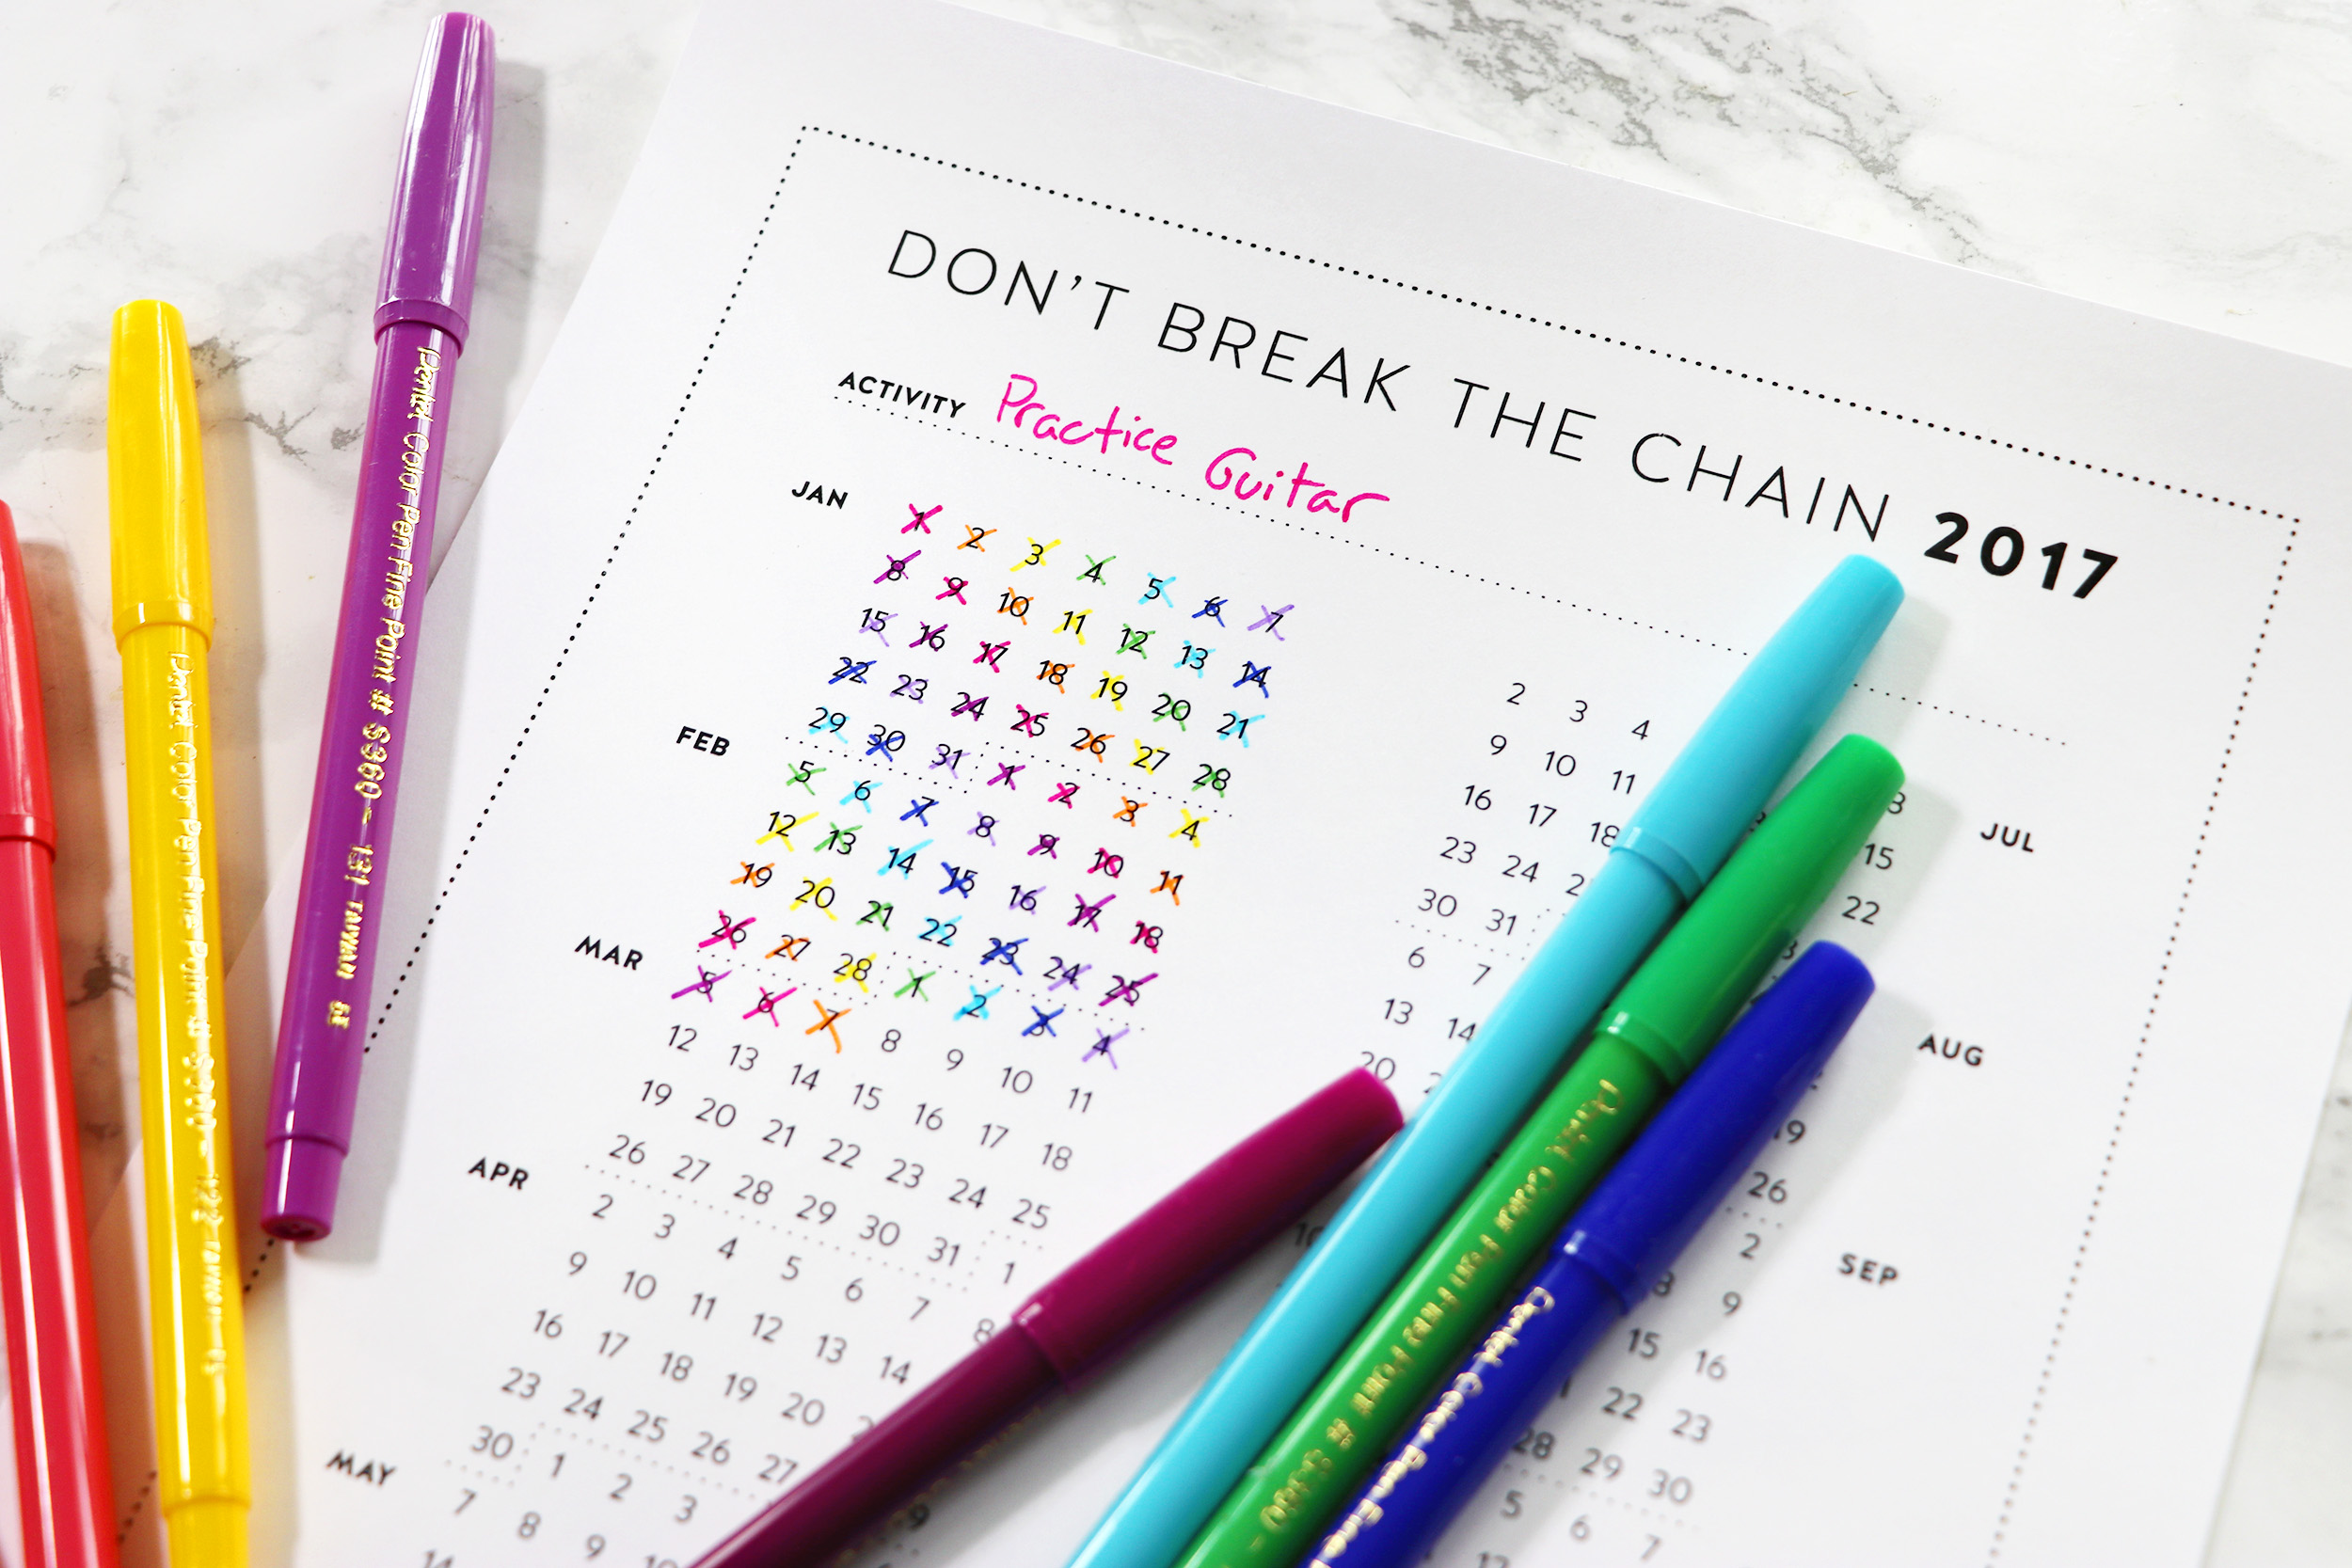 DON'T BREAK THE CHAIN 2017
ACTIVITY Practice Guitar
JAN 1 2 3 4 5 6 7
8 9 10 11 12 13 14
15 16 17 18 19 20 21
22 23 24 25 26 27 28
29 30 31 1 2 3 4
FEB
5 6 7 8 9 10 11
12 13 14 15 16 17 18
19 20 21 22 23 24 25
26 27 28 1 2 3 4
MAR
5 6 7 8 9 10 11
12 13 14 15 16 17 18
19 20 21 22 23 24 25
26 27 28 29 30 31 1
APR
2 3 4 5 6 7 8
9 10 11 12 13 14
16 17 18 19 20
23 24 25 26 27
30 1 2 3
MAY
7 8 9 10
14
2 3 4
9 10 11 15 JUL
16 17 18 22
23 24
30 31
6 7 AUG
13 14 19
20 26
2 SEP
9
15 16
22 23
28 29 30
5 6 7
Pentel Color Pen Fine Point # S360 - 131 TAIWAN
Pentel Color Pen Fine Point # S360 - 122 TAIWAN
Pentel Color Pen Fine Point # S360 -
Pentel Color Pen Fine